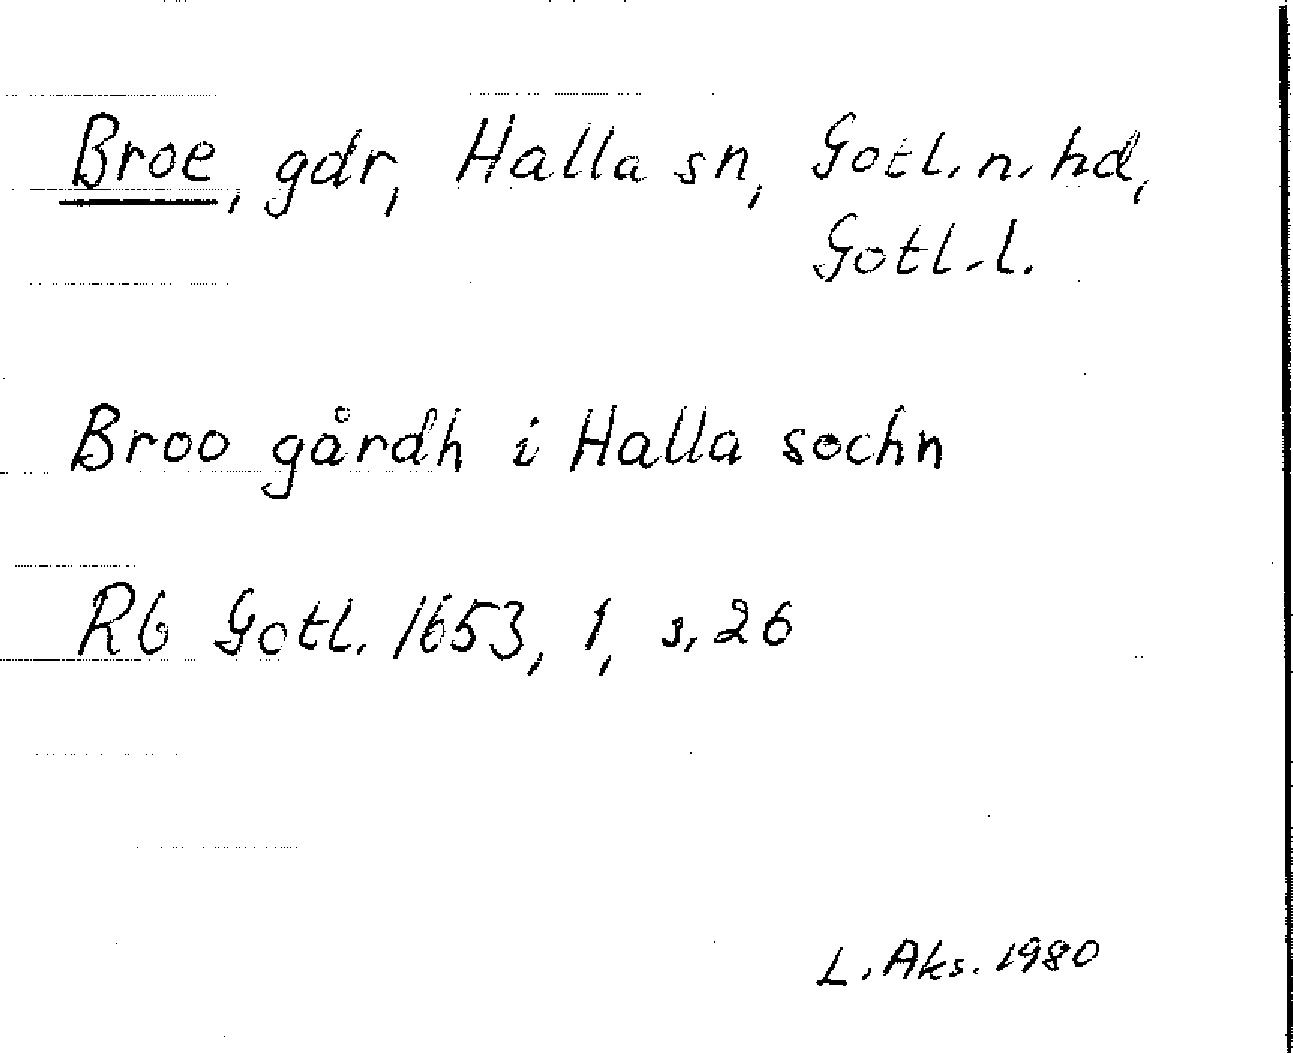 Broe, gdr, Halla sn, Gotl. n. hd,
Gotl. l.
Broo gårdh i Halla sochn
Rb Gotl. 1653, 1, s. 26
L. Aks. 1980